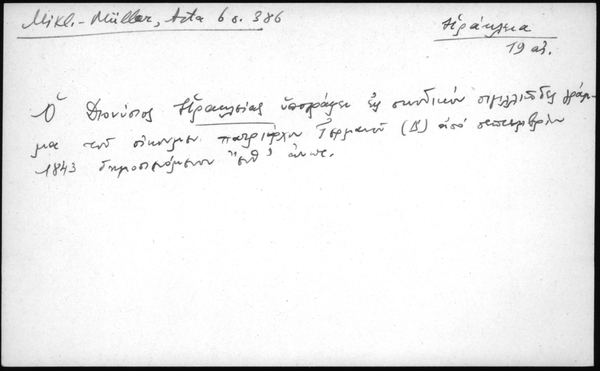 Mikl.-Müller, Acta 6 σ. 386
Ἡράκλεια
19 αἰ.
Ὁ Διονύσιος Ἡρακλείας ὑπογράφει εἰς συνοδικὸν σιγιλλιῶδες γράμ-
μα τοῦ οἰκουμεν. πατριάρχου Γερμανοῦ (Δ') ἀπὸ σεπτεμβρίου
1843 δημοσιευόμενον